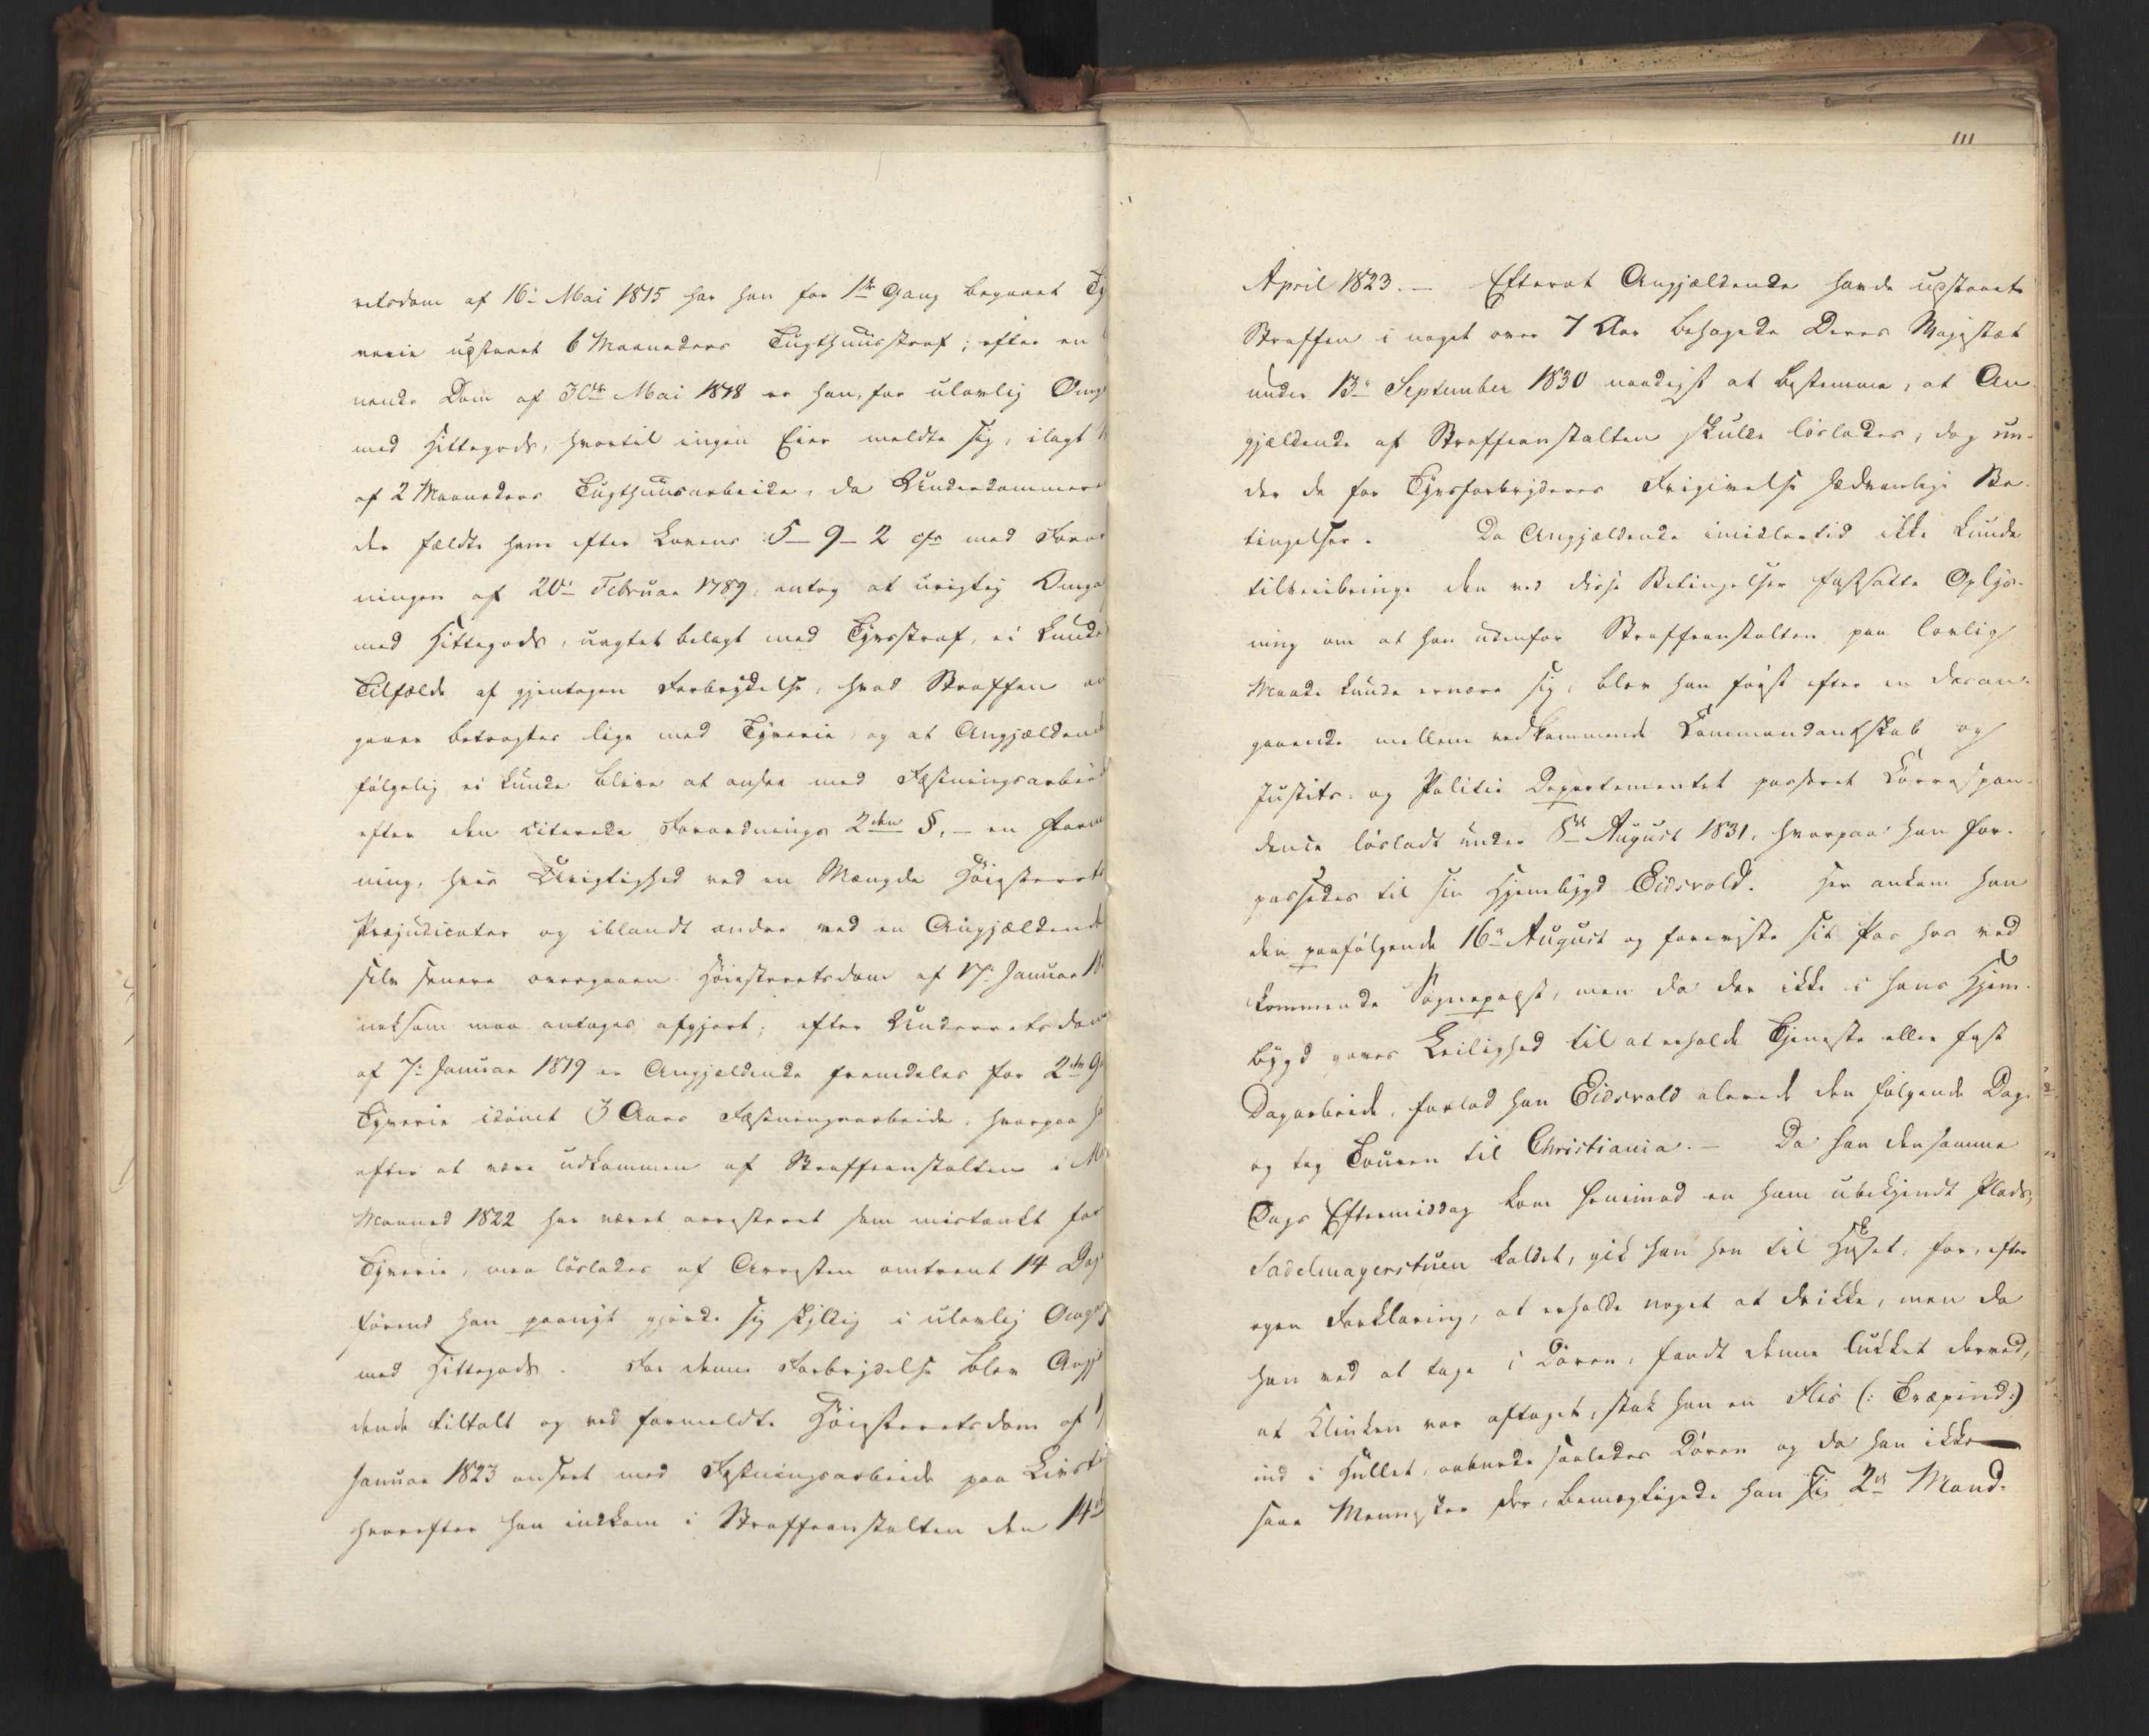 retsdom af 16de Mai 1815 har han for 1ste Gang begaaet Ty
verie udstaaet 6 Maaneders Tugthuusstraf; efter en
nende Dom af 30te Mai 1818 er han, for ulovlig Omg
med Hittegods, hvortil ingen Eier meldte sig, ilagt
af 2 Maaneders Tugthuusarbeide, da Underdommere
der fældte ham efter Lovens 5-9-2 cfr med Foror
ningen af 20de Februar 1789, antog at urigtig Omga
med Hittegods, uagtet belagt med Tyvsstraf, ei kunde
Tilfælde af gjentagen Forbrydelse, hvad Straffen an
gaaer betragtes lige med Tyverie, og at Angjældende
følgelig ei kunde blive at ansee med Fæstningsarbeid
efter den citerede Forordnings 2den §, - en Form
ning, hvis Urigtighed ved en Mængde Høiesterets
Præjudicater og iblandt andre ved en Angjældende
selv senere overgaaen Høiesteretsdom af 17de Januar 18
noksom maa antages afgjort; efter Underretsdom
af 7de Januar 1819 er Angjældende fremdeles for 2den G
Tyverie idømt 3 Aars Fæstningsarbeide, hvorpaa h
efter at være udkommen af Straffeanstalten i M
Maaned 1822 har været arresteret som mistænkt for
Tyverie, men løslades af Arresten omtrent 14 Dag
førend han paanyt gjorde sig skyldig i ulovlig Omg
med Hittegods. For denne Forbrydelse blev Angj
dende tiltalt og ved formeldte Høiesteretsdom af 1
Januar 1823 anseet med Fæstningsarbeide paa Livst
hvorefter han indkom i Straffeanstalten den 14de
111
April 1823. - Efterat Angjældende havde udstaaet
Straffen i noget over 7 Aar behagede Deres Majestæt
under 13de September 1830 naadigst at bestemme, at An-
gjældende af Straffeanstalten skulde løslades, dog un-
der de for Tyvsforbryderes Frigivelse sædvanlige Be-
tingelser. Da Angjældende imidlertid ikke kunde
tilveiebringe den ved disse Betingelser fastsatte Oplys-
ning om at han udenfor Straffeanstalten paa lovlig
Maade kunde ernære sig, blev han først efter en desan-
gaaende mellem vedkommende Commandantskab og
Justits- og Politie Departementet passeret Correspon-
dence løsladt under 5te August 1831, hvorpaa han for-
passedes til sin Hjembygd Eidsvold. Her ankom han
den paafølgende 16de August og foreviste sit Pas hos ved
kommende Sognepræst, men da der ikke i hans Hjem-
bygd gaves Leilighed til at erholde Tjeneste eller fast
Dagarbeide, forlod han Eidsvold alerede den følgende Dag
og tog Touren til Christiania. - Da han densamme
Dags Eftermiddag kom henimod en ham ubekjendt Plads,
Sadelmagerstuen kaldet, gik han hen til Huset, for, efter
egen Forklaring, at erholde noget at drikke, men da
han ved at tage i Døren, fandt denne lukket derved,
at Klinken var aftaget, stak han en Flis (: Træpind:)
ind i Hullet, aabnede saaledes Døren og da han ikke
saae Mennesker der, bemægtigede han sig 2de Mand-